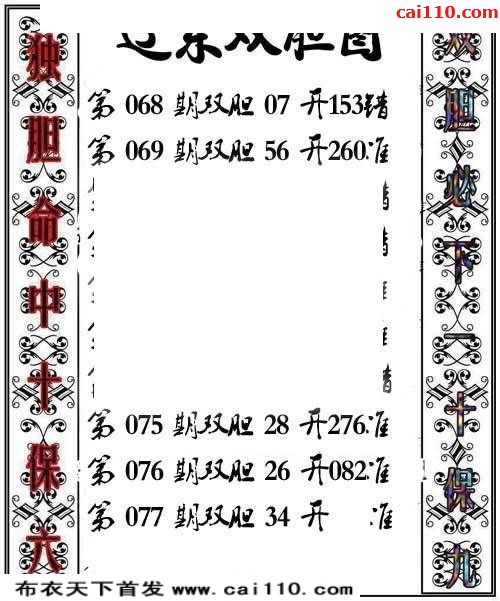 cai110.com
独胆命中十保六
双胆必下一十保九
辽东双胆图
第 068 期双胆 07 开153错
第 069 期双胆 56 开260准
第 075 期双胆 28 开276准
第 076 期双胆 26 开082准
第 077 期双胆 34 开 准
布衣天下首发 www.cai110.com